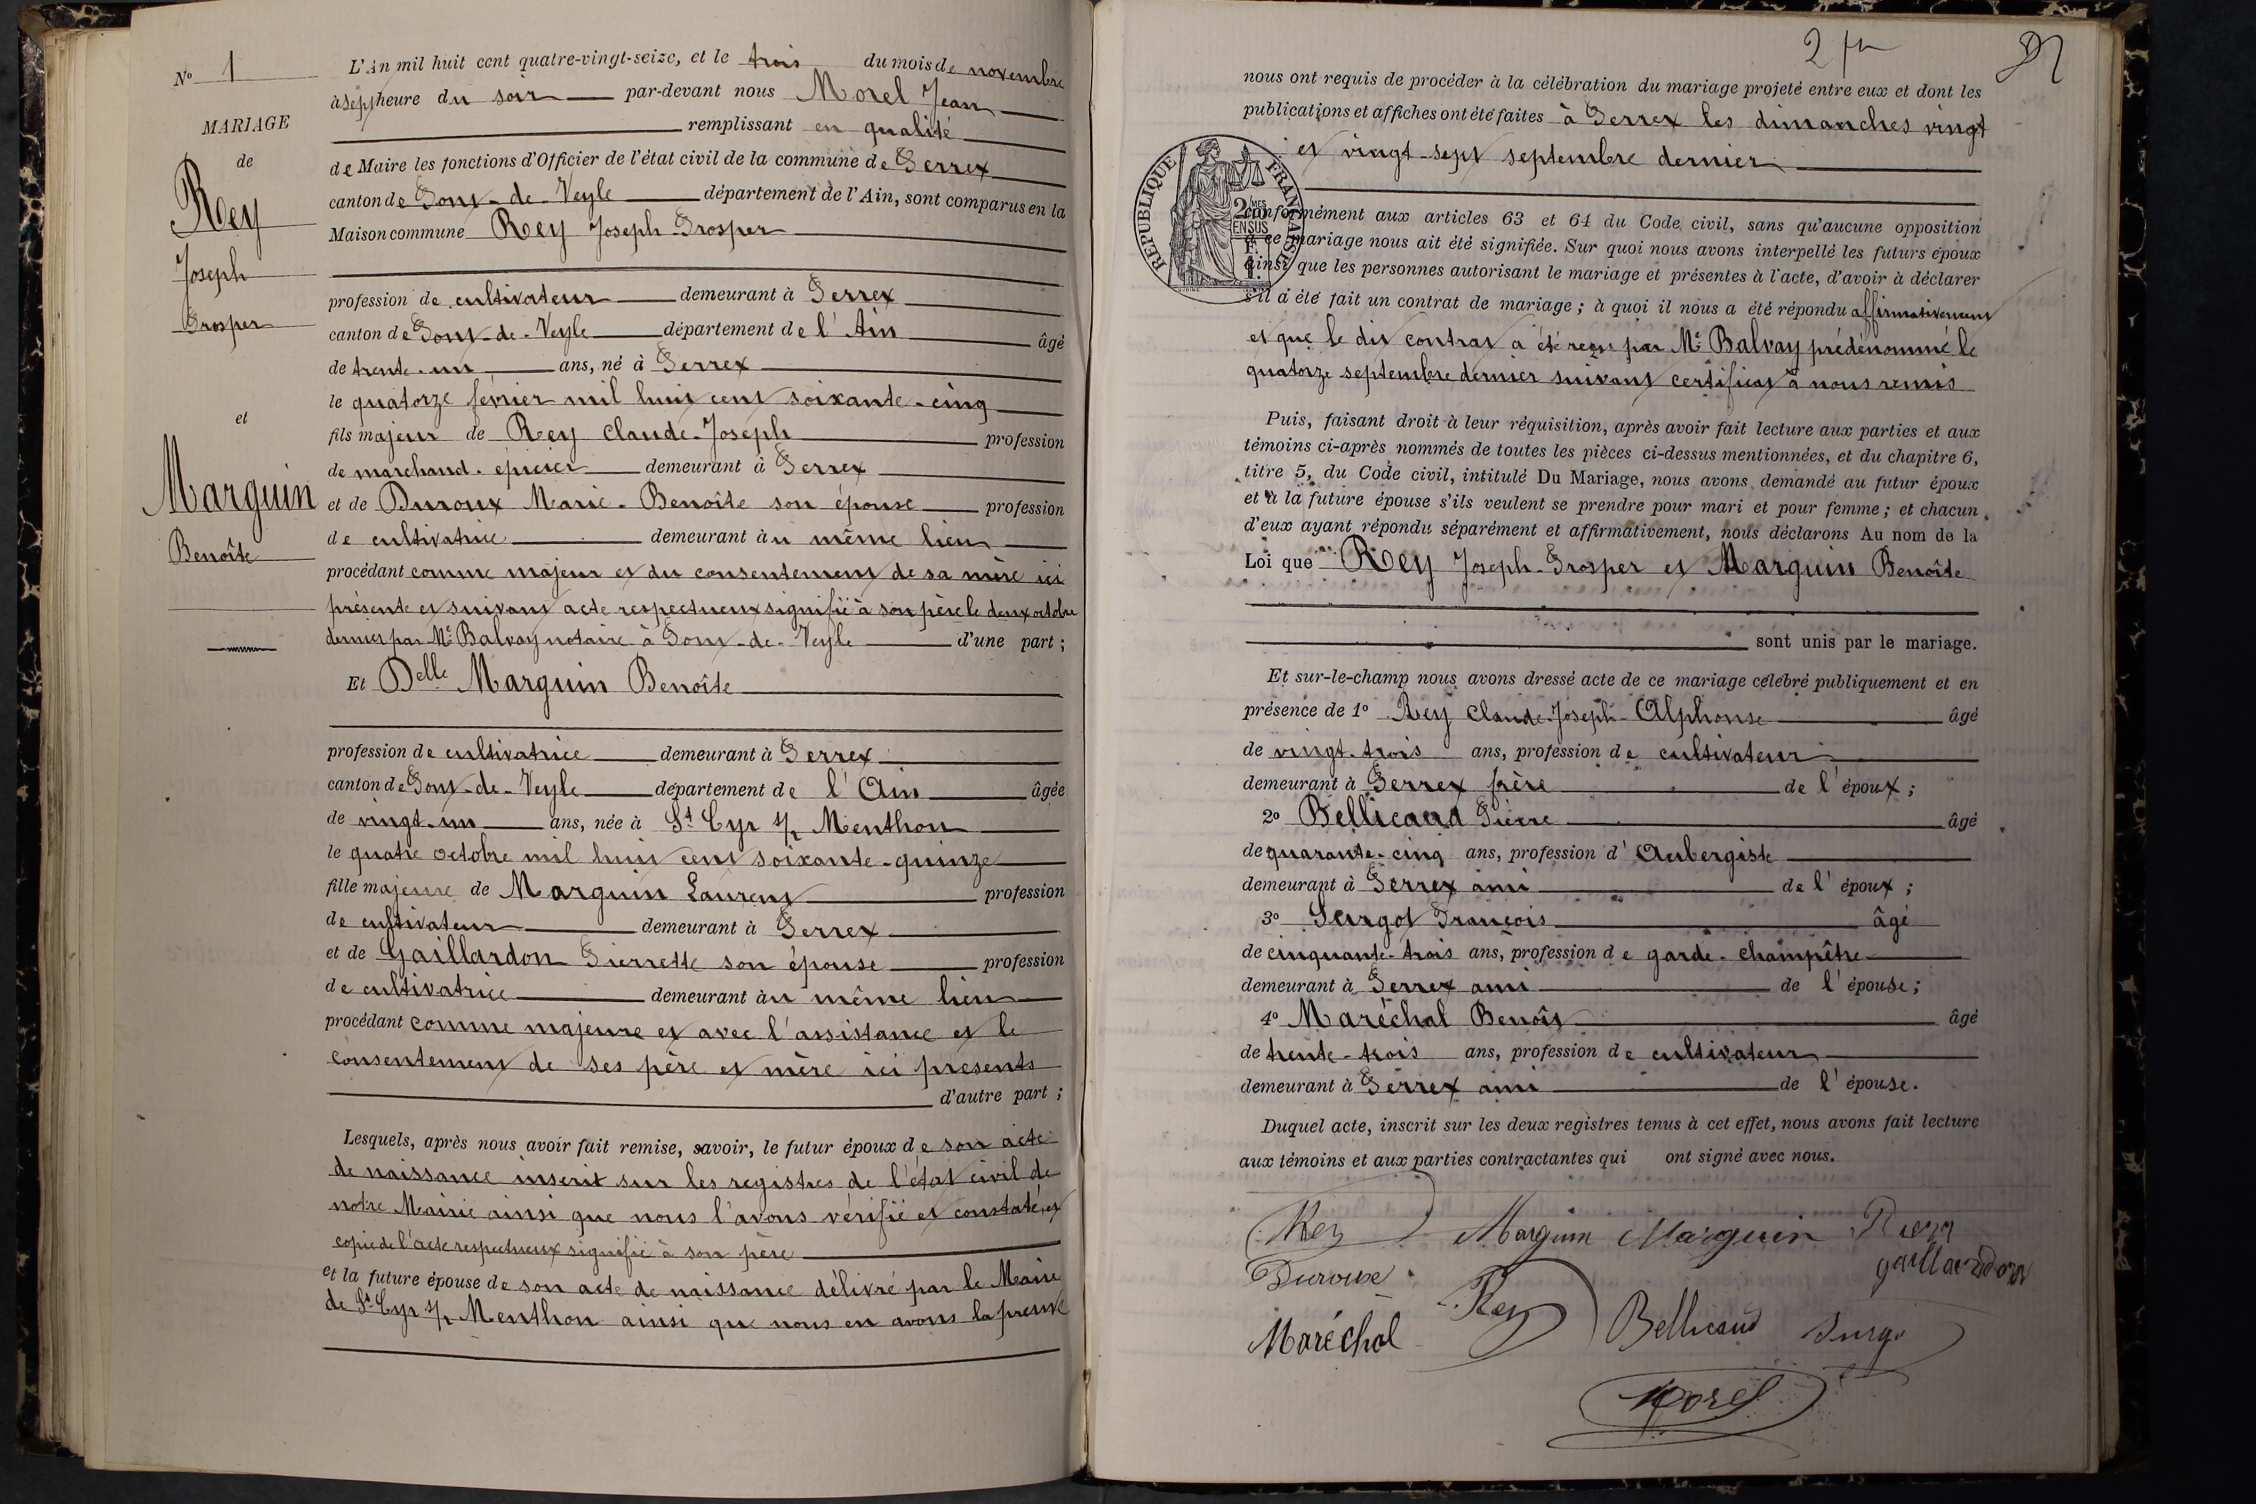 Nº 1
MARIAGE
de
Rey
Joseph
Prosper
et
Marguin
Benoîte
L'An mil huit cent quatre-vingt-seize, et le trois du mois de novembre
à sept heure du soir par-devant nous Morel Jean
remplissant en qualité
de Maire les fonctions d'Officier de l'état civil de la commune de Perrex
canton de Pont-de-Veyle département de l'Ain, sont comparus en la
Maison commune Rey Joseph-Prosper
profession de cultivateur demeurant à Perrex
canton de Pont-de-Veyle département de l'Ain âgé
de trente-un ans, né à Perrex
le quatorze février mil huit cent soixante-cinq
fils majeur de Rey Claude-Joseph profession
de marchand-épicier demeurant à Perrex
et de Duroux Marie-Benoîte son épouse profession
de cultivatrice demeurant au même lieu
procédant comme majeur et du consentement de sa mère ici
présente et suivant acte respectueux signifié à son père le deux octobre
dernier par Me Balvay notaire à Pont-de-Veyle d'une part ;
Et Delle Marguin Benoîte
profession de cultivatrice demeurant à Perrex
canton de Pont-de-Veyle département de l'Ain âgée
de vingt-un ans, née à St Cyr s/ Menthon
le quatre octobre mil huit cent soixante-quinze
fille majeure de Marguin Laurent profession
de cultivateur demeurant à Perrex
et de Gaillardon Pierrette son épouse profession
de cultivatrice demeurant au même lieu
procédant comme majeure et avec l'assistance et le
consentement de ses père et mère ici présents
d'autre part ;
Lesquels, après nous avoir fait remise, savoir, le futur époux de son acte
de naissance inscrit sur les registres de l'état civil de
notre Mairie ainsi que nous l'avons vérifié et constaté, et
copie de l'acte respectueux signifié à son père
et la future épouse de son acte de naissance délivré par le Maire
de St Cyr s/ Menthon ainsi que nous en avons la preuve
2
nous ont requis de procéder à la célébration du mariage projeté entre eux et dont les
publications et affiches ont été faites à Perrex les dimanches vingt
et vingt-sept septembre dernier
RÉPUBLIQUE FRANÇAISE
2 MES
EN SUS
conformément aux articles 63 et 64 du Code civil, sans qu'aucune opposition
à ce mariage nous ait été signifiée. Sur quoi nous avons interpellé les futurs époux
ainsi que les personnes autorisant le mariage et présentes à l'acte, d'avoir à déclarer
s'il a été fait un contrat de mariage ; à quoi il nous a été répondu affirmativement
et que le dit contrat a été reçu par Me Balvay prédénommé le
quatorze septembre dernier suivant certificat à nous remis
Puis, faisant droit à leur réquisition, après avoir fait lecture aux parties et aux
témoins ci-après nommés de toutes les pièces ci-dessus mentionnées, et du chapitre 6,
titre 5, du Code civil, intitulé Du Mariage, nous avons demandé au futur époux
et à la future épouse s'ils veulent se prendre pour mari et pour femme ; et chacun
d'eux ayant répondu séparément et affirmativement, nous déclarons Au nom de la
Loi que Rey Joseph-Prosper et Marguin Benoîte
sont unis par le mariage.
Et sur-le-champ nous avons dressé acte de ce mariage célébré publiquement et en
présence de 1º Rey Claude-Joseph-Alphonse âgé
de vingt-trois ans, profession de cultivateur
demeurant à Perrex frère de l'époux ;
2º Bellicaud Pierre âgé
de quarante-cinq ans, profession d'Aubergiste
demeurant à Perrex ami de l'époux ;
3º Surgot François âgé
de cinquante-trois ans, profession de garde-champêtre
demeurant à Perrex ami de l'épouse ;
4º Maréchal Benoît âgé
de trente-trois ans, profession de cultivateur
demeurant à Perrex ami de l'épouse.
Duquel acte, inscrit sur les deux registres tenus à cet effet, nous avons fait lecture
aux témoins et aux parties contractantes qui ont signé avec nous.
Rey Marguin Marguin
gaillardon
Duroux Rey Bellicaud Surgo
Maréchal
Morel